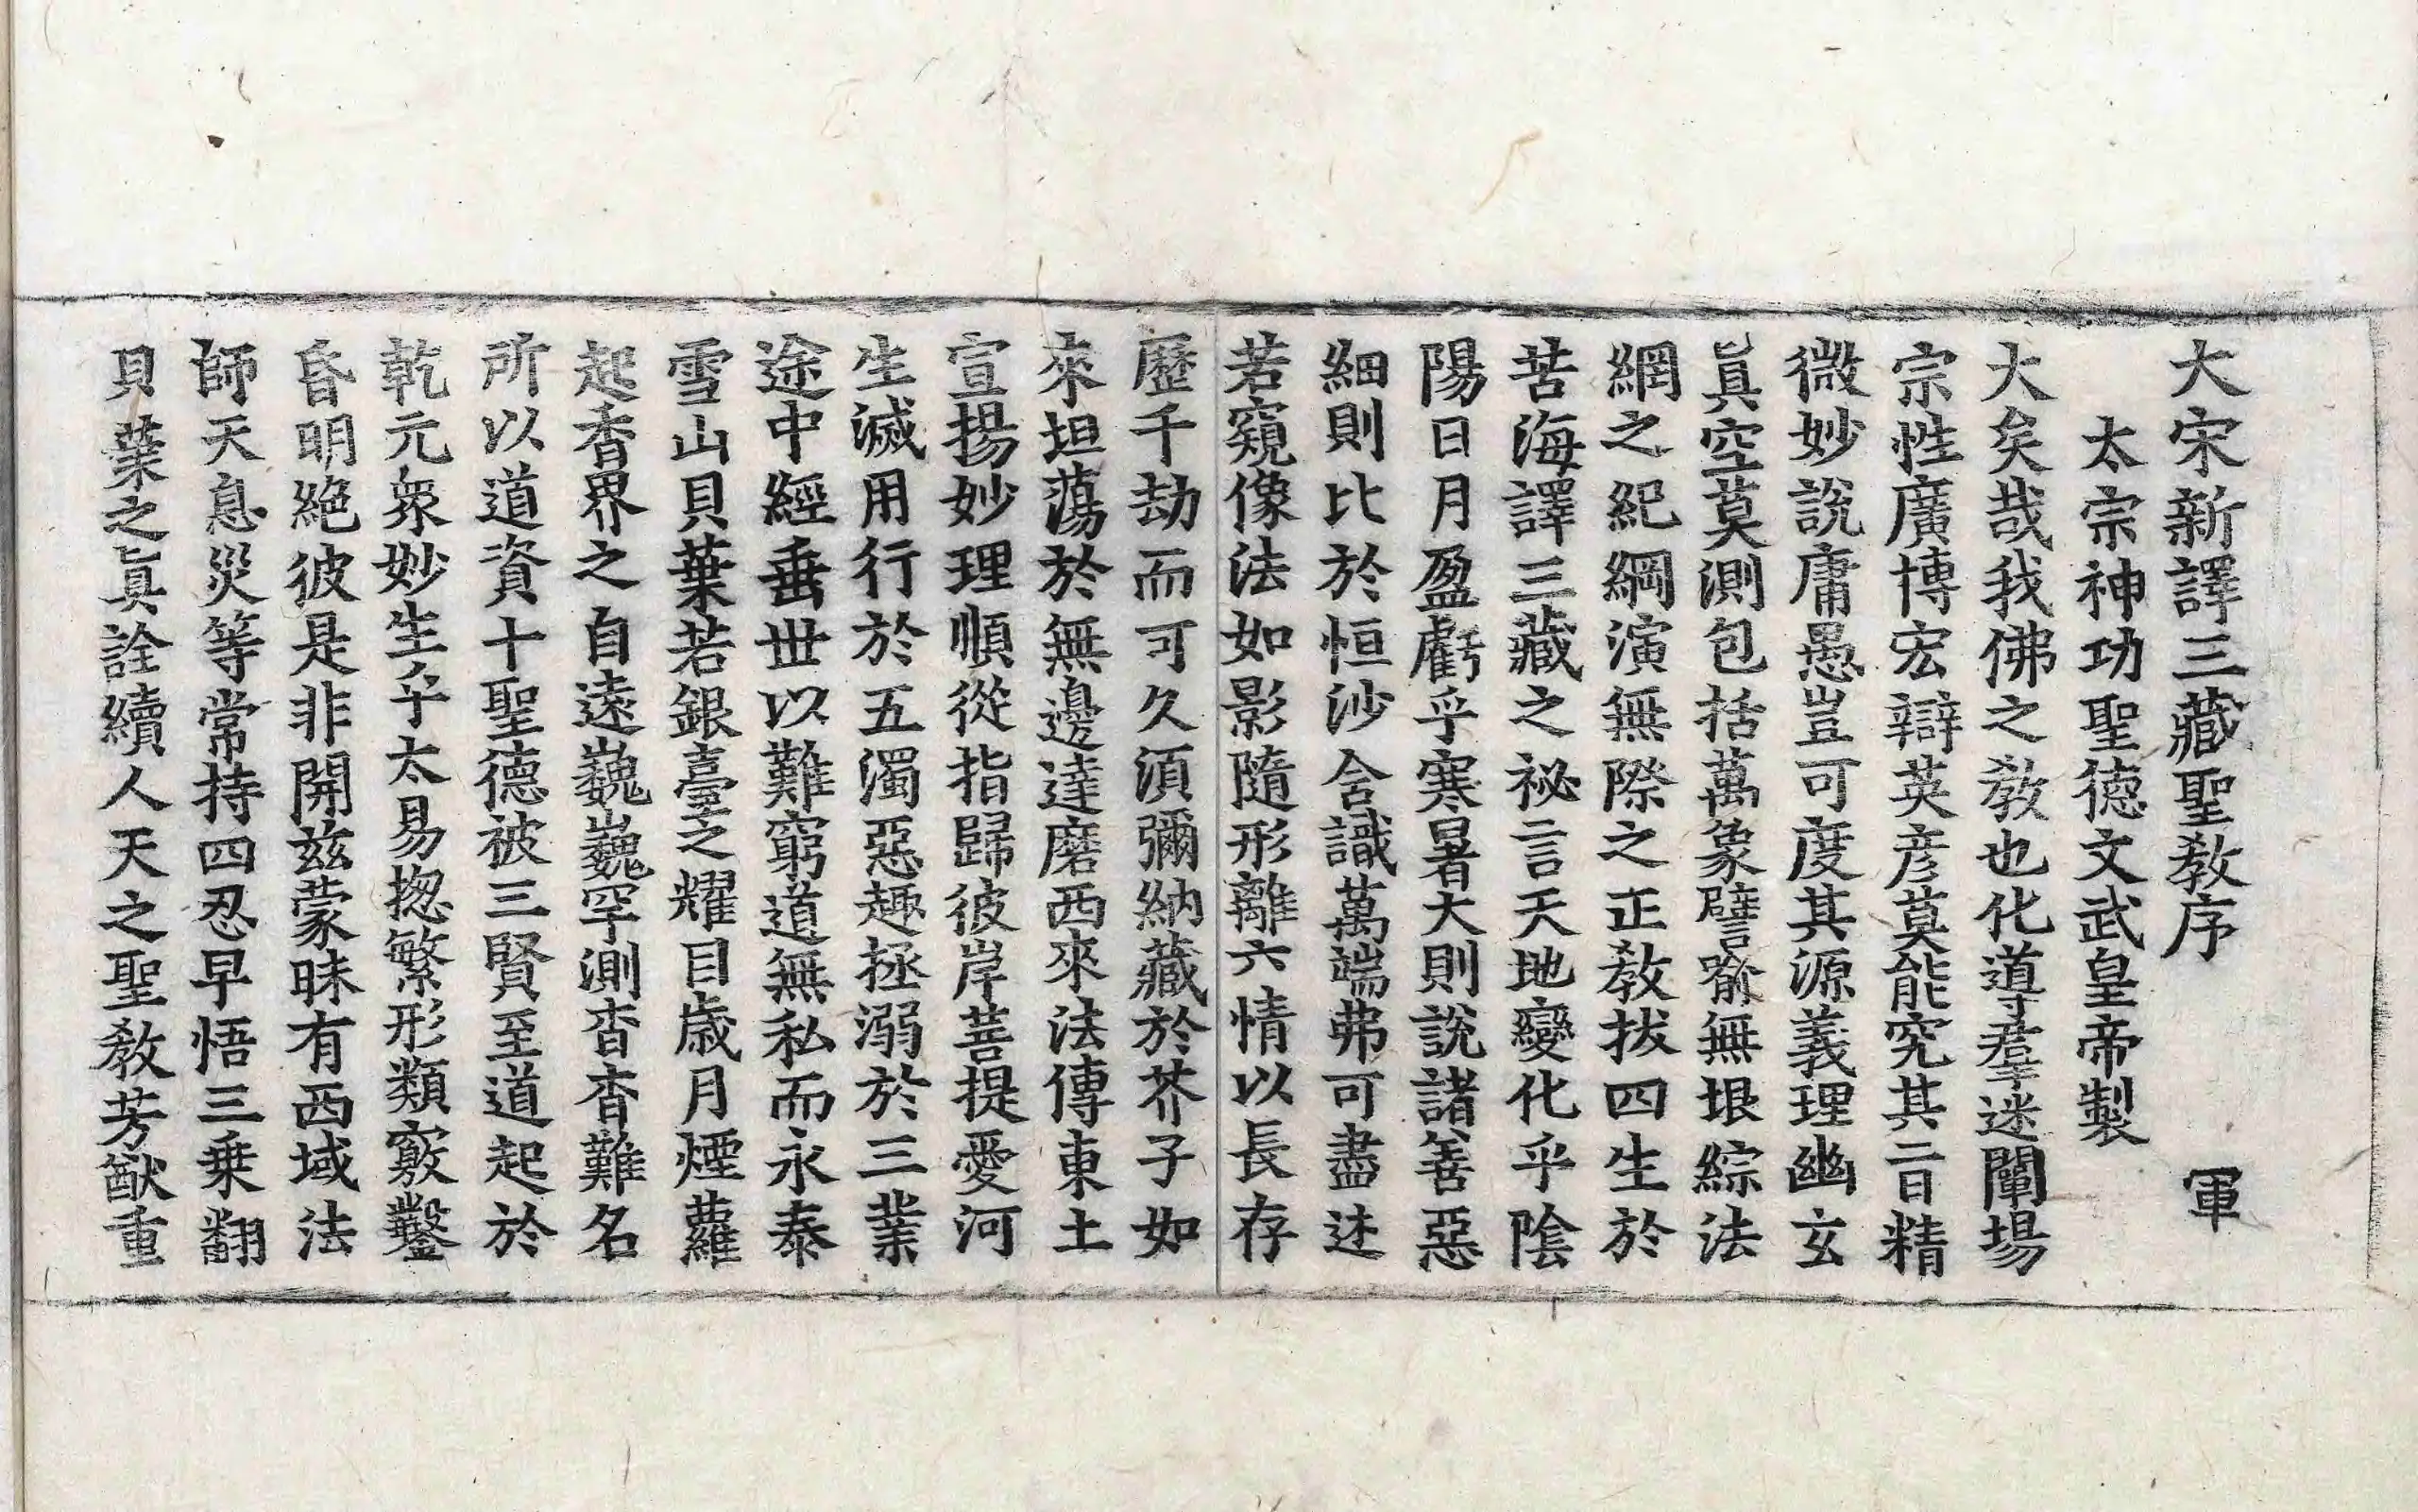 大宋新譯三藏聖教序 軍
太宗神功聖德文武皇帝製
大矣哉我佛之教也化導羣迷闡揚
宗性廣博宏辯英彦莫能究其旨精
微妙說庸愚豈可度其源義理幽玄
眞空莫測包括萬象譬喻無垠綜法
網之紀綱演無際之正教拔四生於
苦海譯三藏之祕言天地變化乎陰
陽日月盈虧乎寒暑大則說諸善惡
細則比於恒沙含識萬端弗可盡述
若窺像法如影隨形離六情以長存
歷千劫而可久須彌納藏於芥子如
來坦蕩於無邊達磨西來法傳東土
宣揚妙理順從指歸彼岸菩提愛河
生滅用行於五濁惡趣拯溺於三業
途中經垂世以難窮道無私而永泰
雪山貝葉若銀臺之耀目歳月煙蘿
起香界之自遠巍巍罕測杳杳難名
所以道資十聖德被三賢至道起於
乾元衆妙生乎太易揔繁形類竅鑿
昏明絕彼是非開茲蒙昧有西域法
師天息災等常持四忍早悟三乘翻
貝葉之眞詮續人天之聖教芳猷重